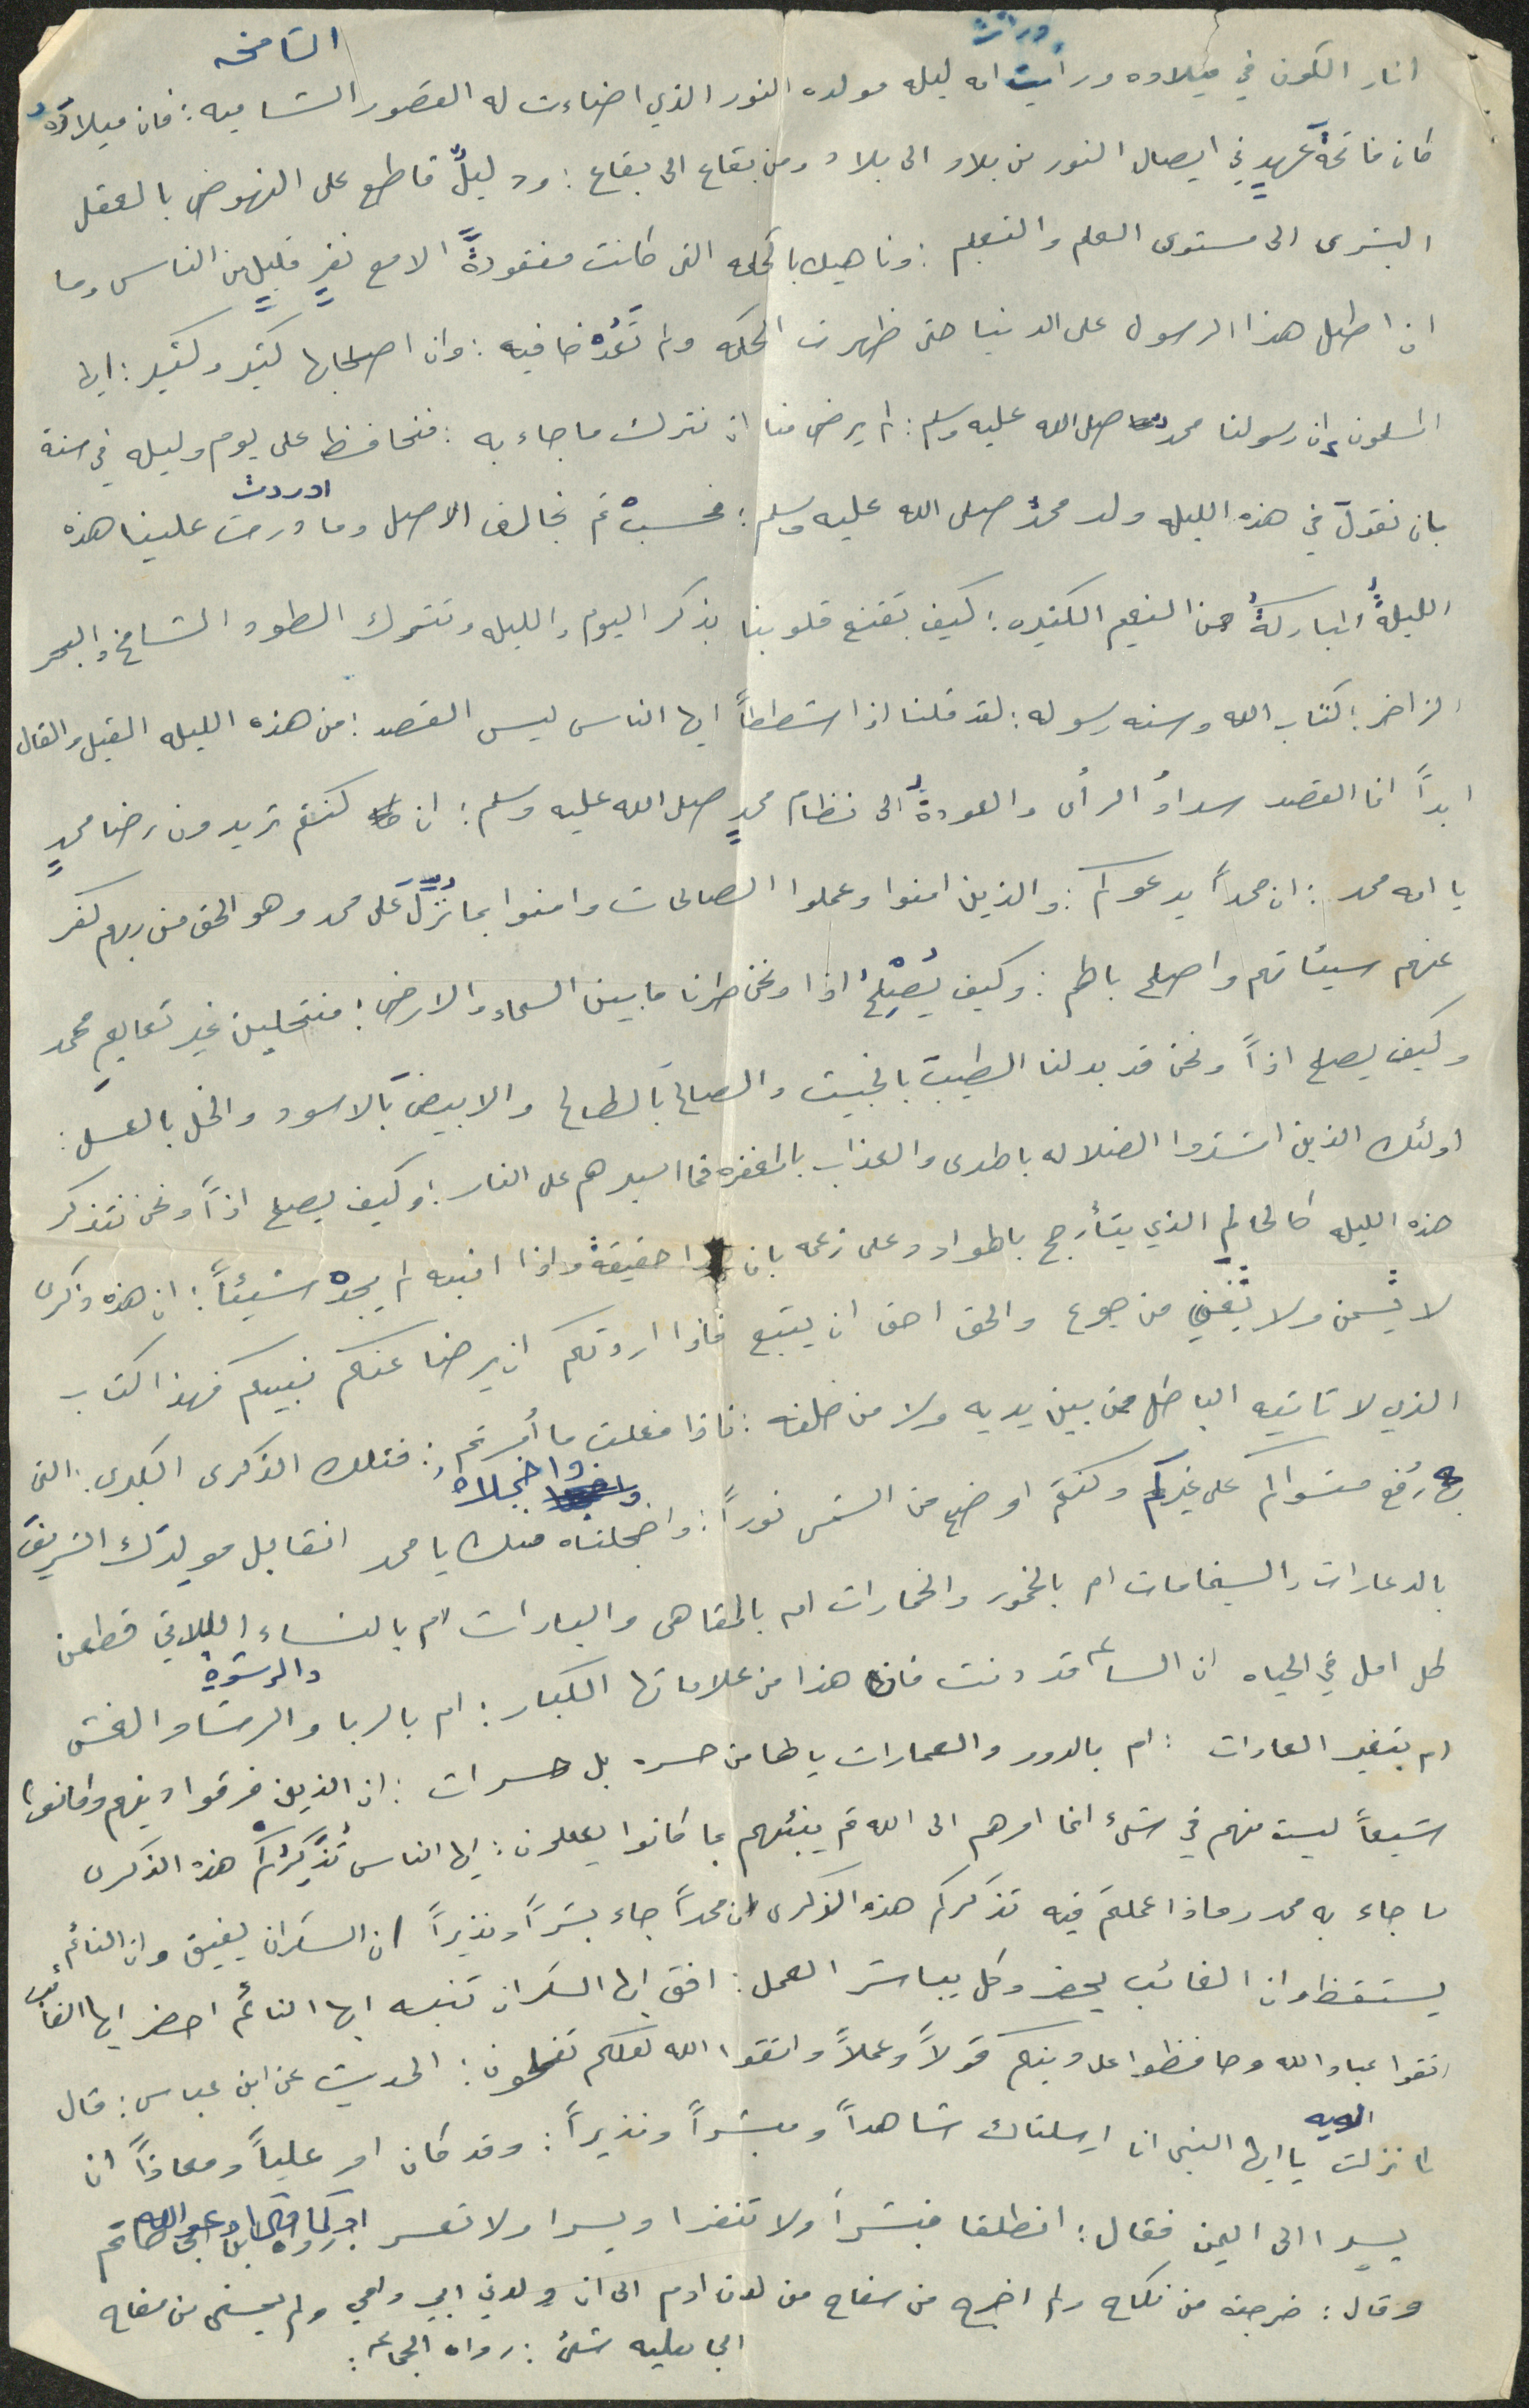 الشامخه
ورأت
انار الكون في ميلاده ورأيت امه ليله مولده النور الذي اضاءت له القصور الشاميه : فان ميلادَهُ
كان فاتحةَ عهدٍ في ايصال النور من بلاد الى بلاد ومن بقاع الى بقاع : ودليلٌ قاطع على النهوض بالعقل
البشرى الى مستوى العلم والتعلم : وناهيك بالحكمه التى كانت مفقودةً الا مع نفرٍ قليلٍ من الناس وما
ان اطل هذا الرسول على الدنيا حتى ظهرت الحكمه ولم تَعُدْ خافيه : وان اصحابها كثير وكثير : ايها
المسلمون ان رسولنا محمد صلى الله عليه وسلم : لم يرضى منا ان نترك ما جاء به : فنحافظ على يوم وليله في سنة
بان نقول في هذه الليله ولد محمدٌ صلى الله عليه وسلم : فحسبْ ثم نخالف الاصل وما درت علينا هذه
ادردت
الليلةُ المباركةُ من النعيم الكثيره : كيف تقنع قلوبنا بذكر اليوم والليله ونترك الطود الشامخ والبحر
الزاخر : كتاب الله وسنه رسوله : لقد قلنا اذا شططاً ايها الناس ليس القصد : من هذه الليله القيل والقال
ابداً انما القصد سدادُ الرأى والعودةُ الى نظام محمدٍ صلى الله عليه وسلم : ان كنتم تريدون رضا محمدٍ
يا امه محمد : ان محمداً يدعوكم : والذين امنوا وعملوا الصالحات وامنوا بما نُزِّلَ عَلى محمد وهو الحق من ربهم كفر
عنهم سيئاتهم واصلح بالهم : وكيف يُصْلِحُ اذا ونحن طرنا ما بين السماء والارض : منتحلين غير تعاليم محمد
وكيف يصلح اذاً ونحن قد بدلنا الطيبَ بالخبيث والصالحَ بالطالح والابيضَ بالاسود والخل بالعسل :
اولئك الذين اشتروا الضلاله بالهدى والعذاب بالمغفره فما اصبرهم على النار : وكيف يصلح اذاً ونحن نتذكر
هذه الليله كالحالم الذي يتأرجح بالهواد وعلى زعمه بان حقيقةً واذا انبه لم يجدْ شيئاً : ان هذه ذكرى
لا تُسمن ولا تُغني من جوع والحق احق ان يتبع فاذا اردتكم ان يرضا عنكم نبيكم فهذا كتاب
الذي لا تاتيه الباطل من بين يديه ولا من خلفه : فاذا فعلت ما أُمرتم : فتلك الذكرى الكبرى : التى
واخجلاه
رُفع مستواكم على غيركم وكنتم اوضح من الشمس نوراً : واخجلتاه منك يا محمد انقابل مولدَك الشريفَ
بالدعارات والسخامات ام بالخمور والخمارات ام بالمقاهى والبارات ام بالنساء اللاتي قطعن
كل امل في الحياه ان الساعه قد دنت فان هذا من علاماتها الكبار : ام بالربا والرشا والغش
والرشوة
ام بتغير العادات : ام بالدور والعمارات يالها من حسره بل حسرات : ان الذين فرقوا دينهم وكانوا
شيعاً ليست منهم في شىء انما امرهم الى الله ثم ينبئهم بما كانوا يعملون : ايها الناس تُذَكِّرُكُمْ هذه الذكرى
ما جاء به محمد وماذا عملتم فيه تذكركم هذه الذكرى ان محمداً جاء بشراً ونذيراً ان السكران يفيق وان النائم
يستقظ وان الغائب يحضر وكل يباشر العمل : افق ايها السكران تنبه ايها النائم احضر ايها الغائب
اتقوا عباد الله وحافظوا على دينكم قولاً وعملاً واتقوا الله لعلكم تفلحون : الحديث عن ابن عباس : قال
الايه
لما نزلت يا ايها النبى انا ارسلناك شاهداً ومبشراً ونذيراً : وقد كان امر علياً ومعاذاً ان
يسيرا الى اليمن فقال : انطلقا فبشرا ولا تنفرا ويسرا ولا تعسرا
وقال : خرجت من نكاح ولم اخرج من سفاح من لدن ادم الى ان ولدني ابي وامي ولم يصبنى من سفاح
الجاهليه شئ : رواه الجماعه :